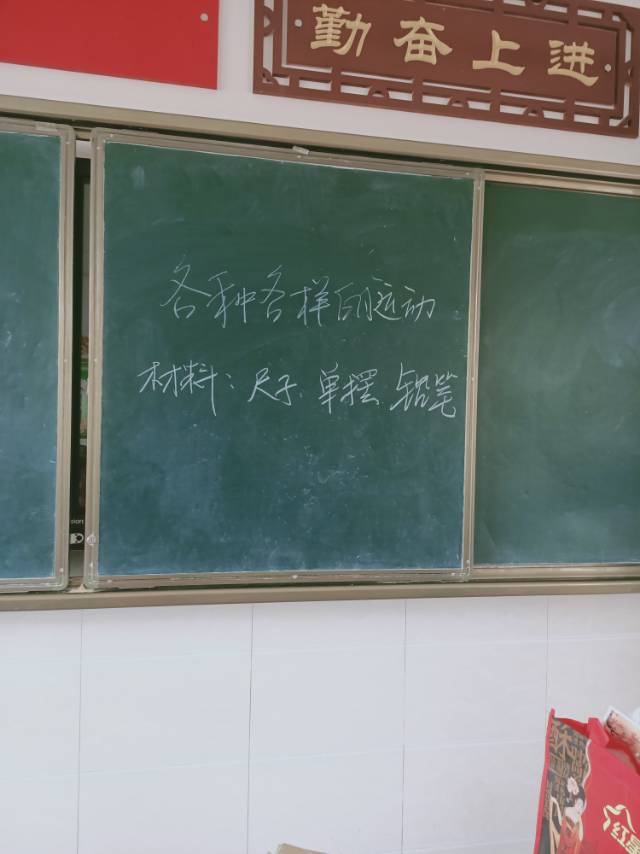 勤奋上进
各种各样的运动
材料：尺子、单摆、铅笔
sion